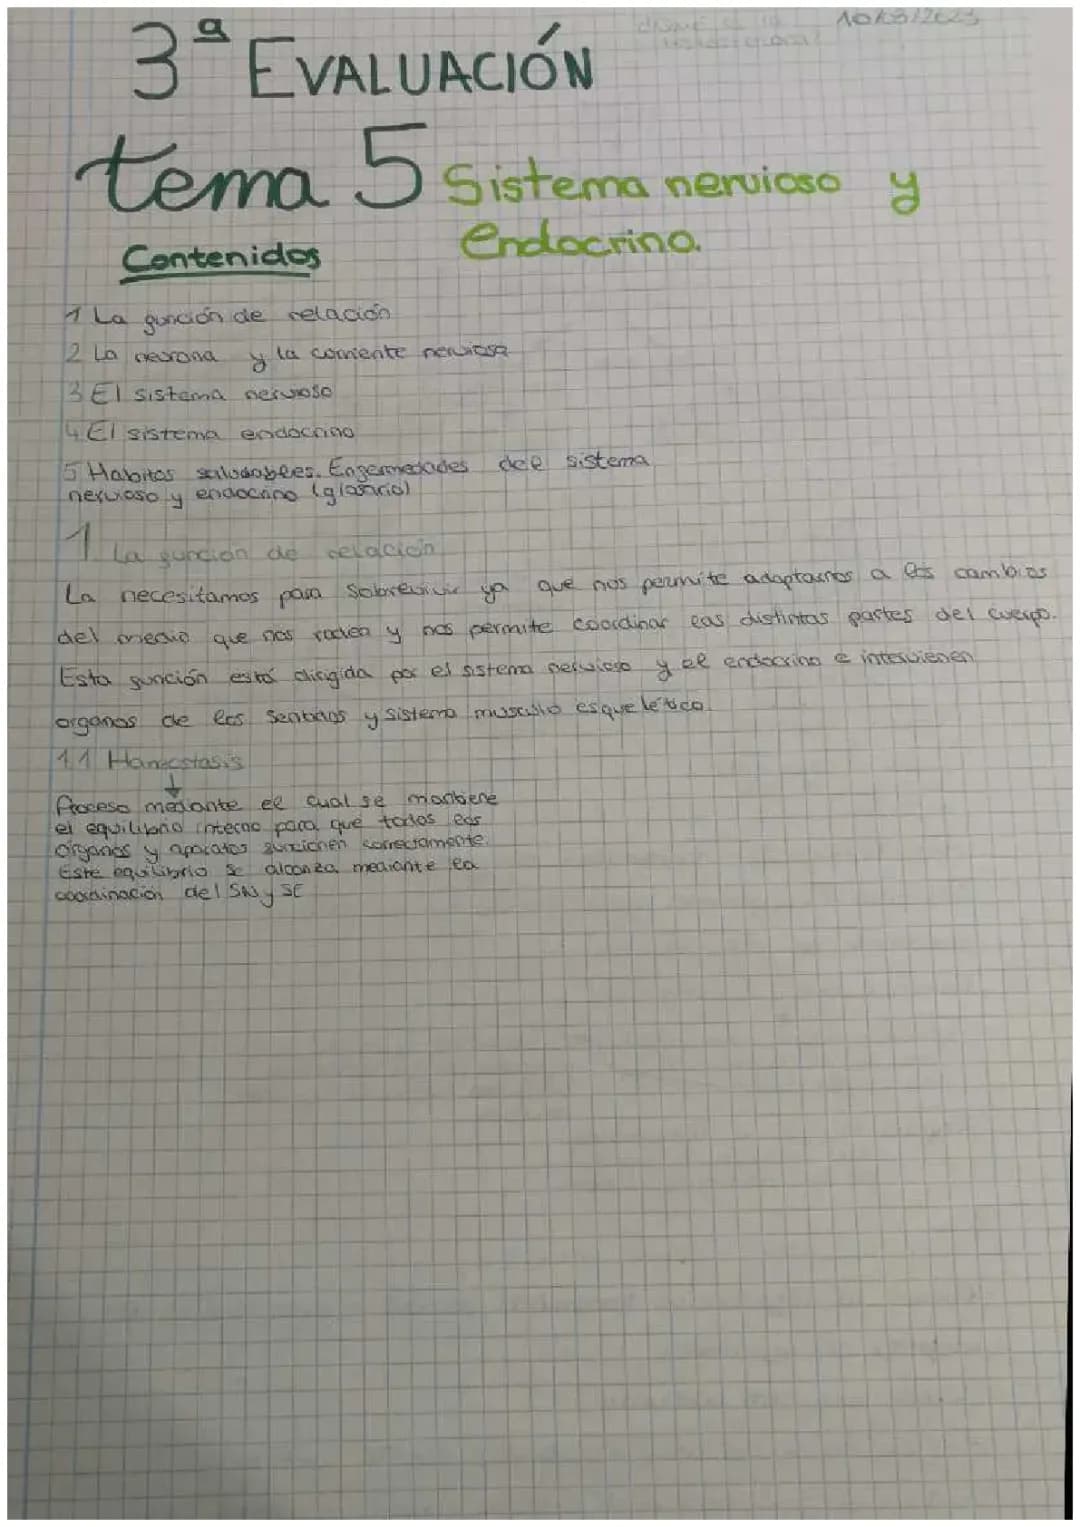 10/03/2023
3ª EVALUACIÓN
tema 5 Sistema nervioso y
endocrino.
Contenidos
1 La función de relación
2 La neurona y la corriente nerviosa
3 El sistema nervioso
4 El sistema endocrino
5 Habitos saludables. Enfermedades del sistema
nervioso y endocrino (glosario)
1 La función de relación
La necesitamos para sobrevivir ya que nos permite adaptarnos a los cambios
del medio que nos rodea y nos permite coordinar las distintas partes del cuerpo.
Esta función está dirigida por el sistema nervioso y el endocrino e intervienen
organos de los sentidos y sistema musculo esquelético.
1.1 Homeostasis
↓
Proceso mediante el cual se mantiene
el equilibrio interno para que todos los
órganos y aparatos funcionen correctamente.
Este equilibrio se alcanza mediante la
coordinación del SN y SE